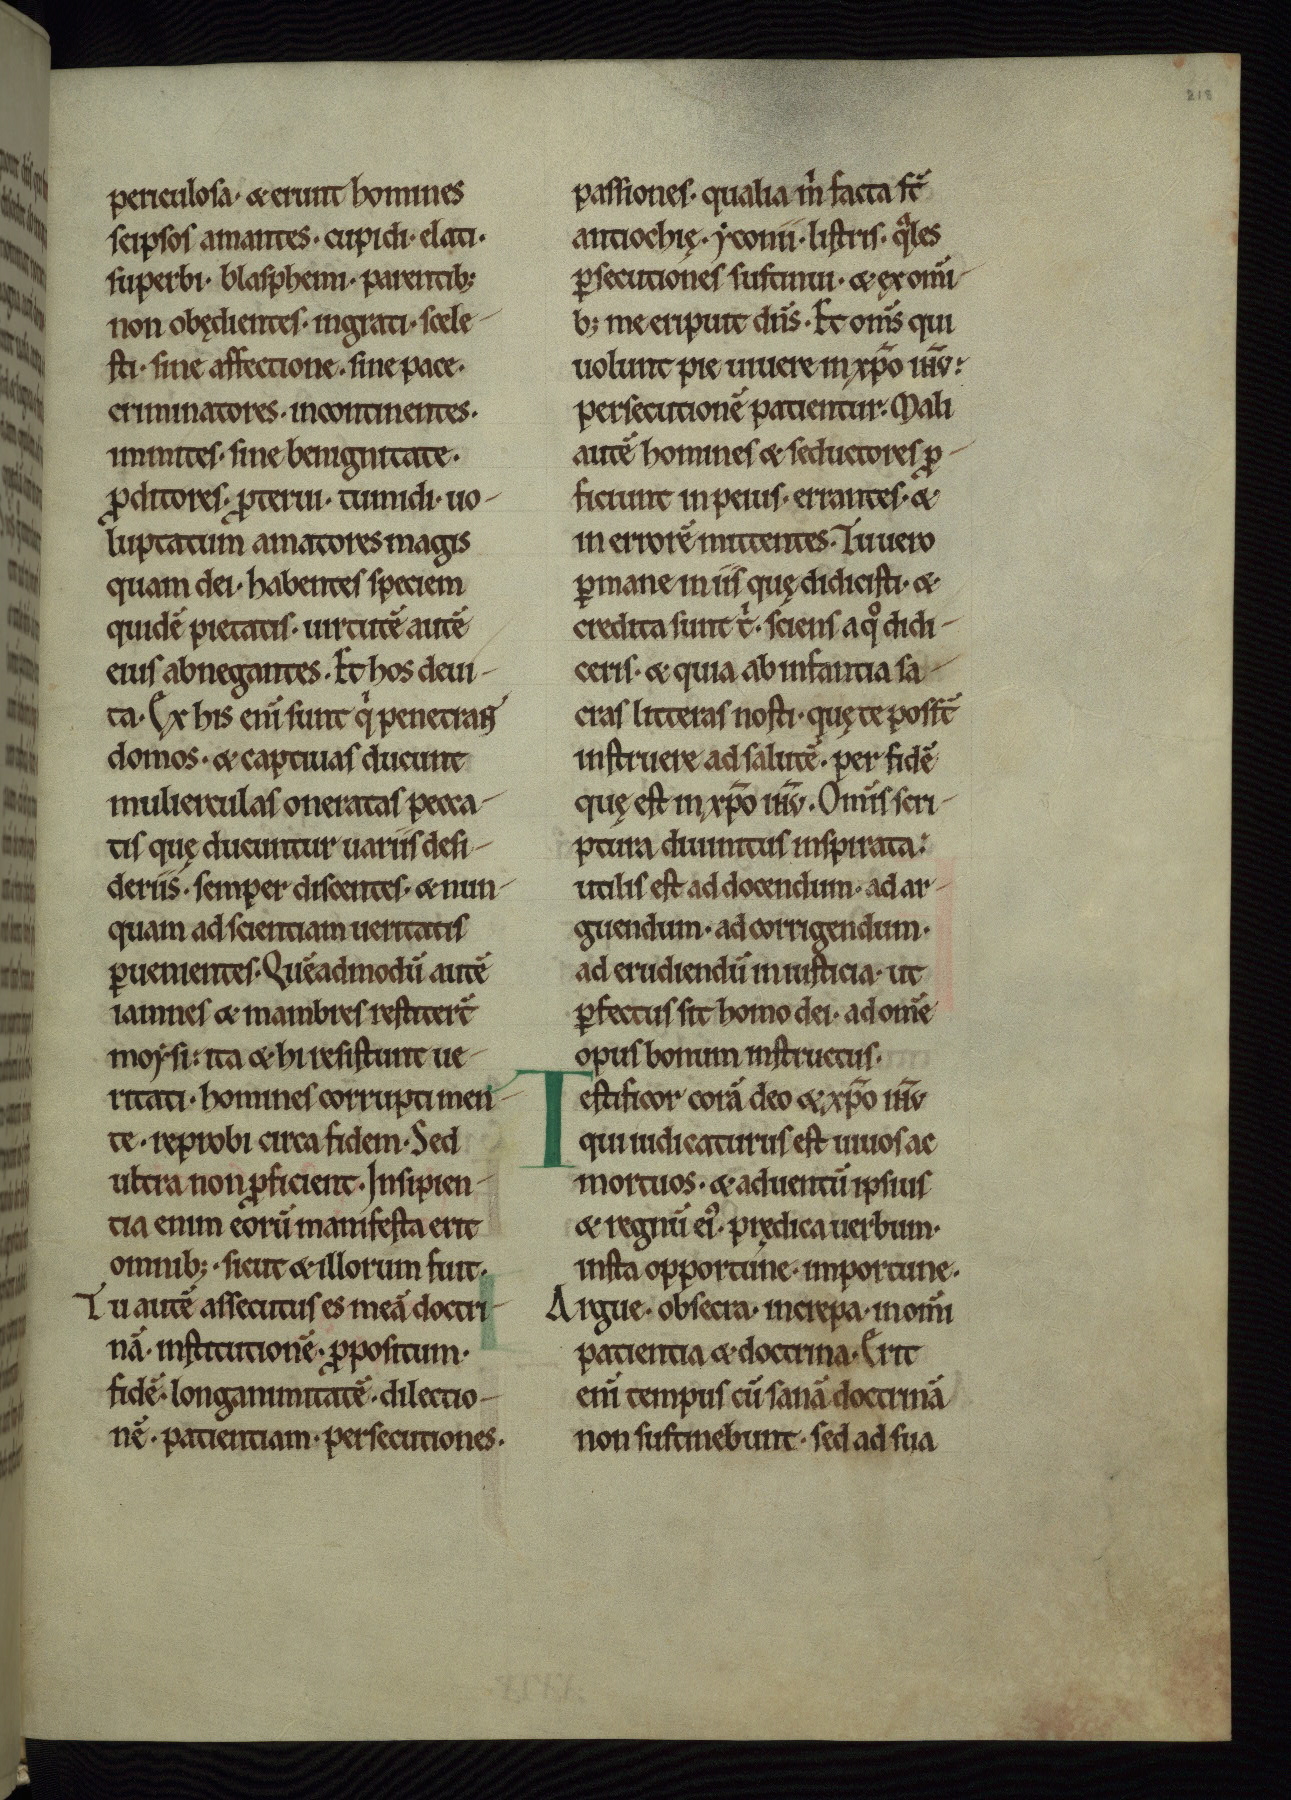 218
periculosa· & erunt homines
seipsos amantes· cupidi· elati·
superbi· blasphemi· parentib;
non obędientes· ingrati· scele-
sti· sine affectione· sine pace·
criminatores· incontinentes·
inmites· sine benignitate·
ꝓditores· ꝓterui· tumidi· uo-
luptatum amatores magis
quam dei· habentes speciem
quidē pietatis· uirtutē autē
eius abnegantes· Et hos deui-
ta· Ex his eni̅ sunt qͥ penetrant
domos· & captiuas ducunt
mulierculas oneratas pecca-
tis quę ducuntur uariis desi-
deriis· semper discentes· & nun-
quam ad scientiam ueritatis
ꝑuenientes· Quēadmodū autē
iamnes & mambres restiter̅t
moysi: ita & hi resistunt ue-
ritati· homines corrupti men-
te· reprobi circa fidem· Sed
ultra non ꝓficient· Insipien-
tia enim eorū manifesta erit
omnib;· sicut & illorum fuit·
Tu autē assecutus es meā doctri-
nā· institutionē· ꝓpositum·
fidē· longanimitatē· dilectio-
nē· patientiam· persecutiones·
passiones· qualia m̍ facta s̅t
antiochię· yconii· listris· qͣles
ꝑsecutiones sustinui· & ex om̅i-
b; me eripuit dn̅s· Et om̅s qui
uolunt pie uiuere in xp̅o ih̅u:
persecutionē patientur· Mali
autē homines & seductores ꝓ-
ficiunt in peius· errantes· &
in errorē mittentes· Tu uero
ꝑmane in iis quę didicisti· &
credita sunt t̍· sciens a qͦ didi-
ceris· & quia ab infantia sa-
cras litteras nosti· quę te poss̅t
instruere ad salutē· per fidē
quę est in xp̅o ih̅u· Om̅is scri-
ptura diuinitus inspirata:
utilis est ad docendum· ad ar-
guendum· ad corrigendum·
ad erudiendū in iusticia· ut
ꝑfectus sit homo dei· ad om̅e
opus bonum instructus·
Testificor corā deo & xp̅o ih̅u
qui iudicaturus est uiuos ac
mortuos· & aduentū ipsius
& regnū ei᾽· prędica uerbum·
insta opportune· importune·
Argue· obsecra· increpa· in om̅i
patientia & doctrina· Erit
eni̅ tempus cū sanā doctrinā
non sustinebunt· sed ad sua